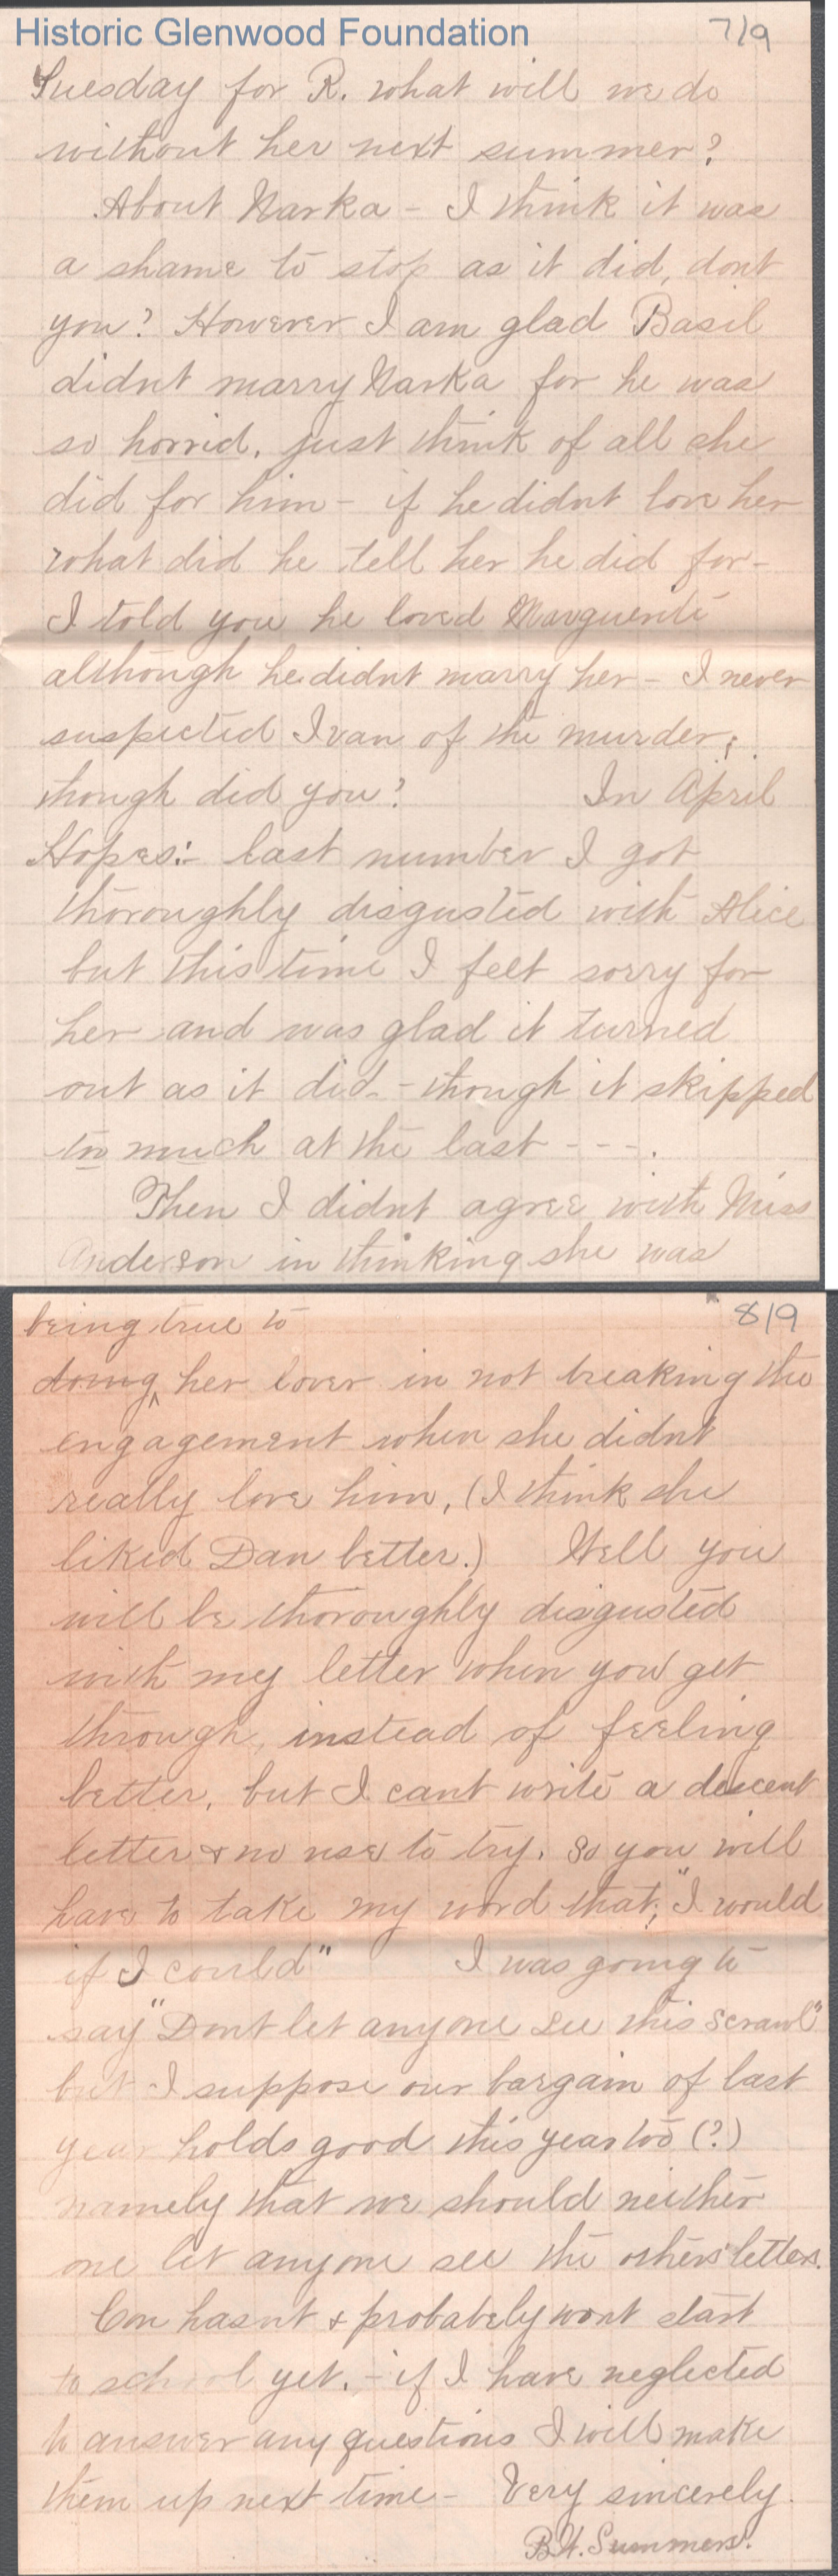 Historic Glenwood Foundation
7/9
Tuesday for R. what will we do
without her next summer?
About Narka - I think it was
a shame to stop as it did, dont
you? However I am glad Basil
didnt marry Narka for he was
so horrid. just think of all she
did for him - if he didnt love her
what did he tell her he did for -
I told you he loved Marguerite
although he didnt marry her - I never
suspected Ivan of the murder;
though did you? In April
Hopes:- last number I got
thoroughly disgusted with Alice
but this time I felt sorry for
her and was glad it turned
out as it did - though it skipped
too much at the last - - - .
Then I didnt agree with Miss
Anderson in thinking she was
8/9
being true to
doing ^ her lover in not breaking the
engagement when she didnt
really love him, (I think she
liked Dan better.) Well you
will be thoroughly disgusted
with my letter when you get
through, instead of feeling
better, but I cant write a descent
letter & no use to try. so you will
have to take my word that; "I would
if I could" I was going to
say "Dont let anyone see this scrawl"
but I suppose our bargain of last
year holds good this year too (?)
namely that we should neither
one let anyone see the others' letters.
Con hasnt & probabely wont start
to school yet. - if I have neglected
to answer any questions I will make
them up next time - Very sincerely.
B.H. Summers.